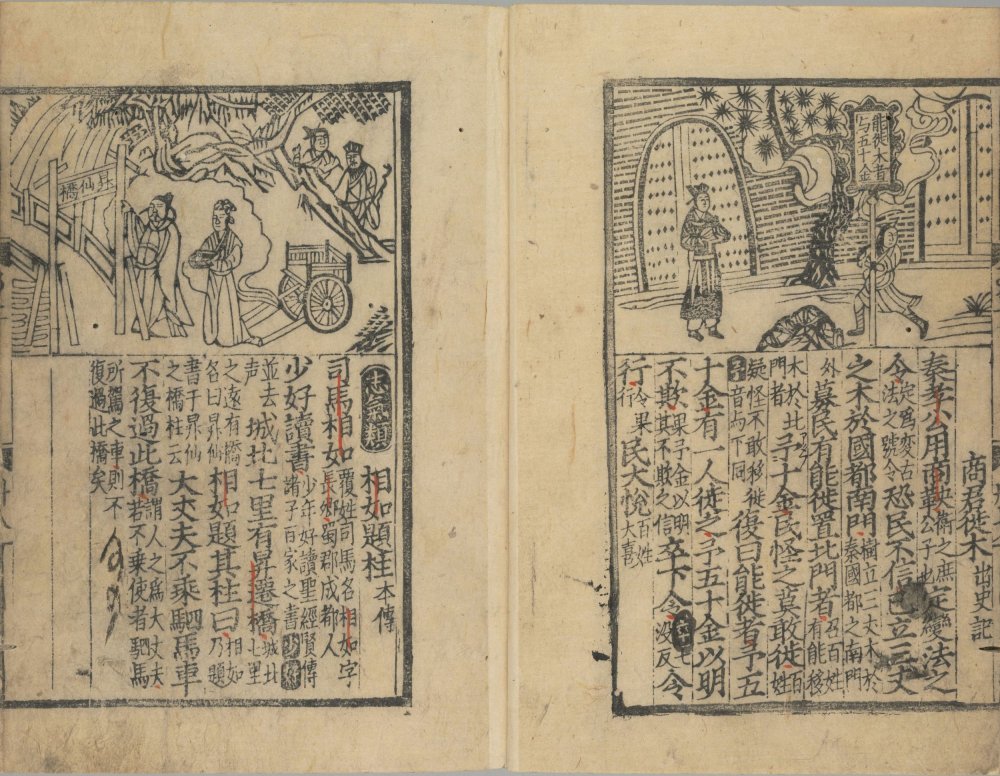 能徙木者
与五十金
商君徙木 出史記
秦孝公用商鞅 央 衛之庶 公子也 定變法之
令 定為变古 法之號令 恐民不信已立三丈
之木於國都南門 樹立三丈木於 秦國都之南門
外 募民有能徙置北門者 召百姓 有能移
木於北 門者 予十金民怪之莫敢徙 百 姓
疑怪不敢移徙 予 音与下同 復曰能徙者予五
十金有一人徙之予五十金以明
不欺 果予金以明 其不欺之信 卒下令 七 没反 令
行 令果 行 民大悅 百姓 大喜
昇仙橋
志氣類 相如題柱 本傳
司馬相如 覆姓司馬名相如字 長卿蜀郡成都人
少好讀書 少年好讀聖經賢傳 諸子百家之書 少好
並去 声 城北七里有昇遷橋 城北 七里
之遠有橋 名曰昇仙 相如題其柱曰 相如 乃題
書于昇仙 之橋柱云 大丈夫不乘駟馬車
不復過此橋 謂人之為大丈夫 若不乘使者駟馬
所駕之車則不 復過此橋矣